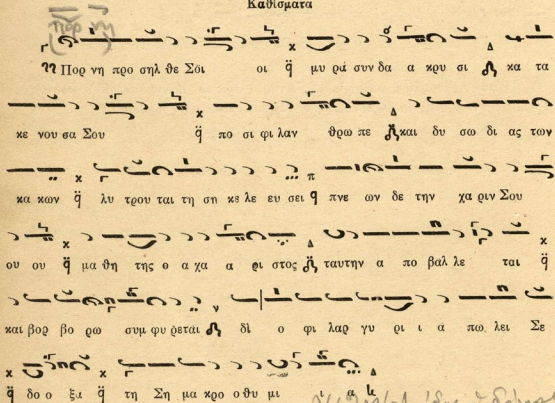 Καθίσματα
Πορ νη προ σηλ θε Σοι οι μυ ρά συν δα α κρυ σι κα τα
κε νου σα Σου πο σι φι λαν θρω πε και δυ σω δι ας των
κα κων λυ τρου ται τη ση κε λε ευ σει πνε ων δε την χα ριν Σου
ου ου μα θη της ο α χα α ρι στος ταυτην α πο βαλ λε ται
και βορ βο ρω συμ φυ ρεται δι ο φι λαρ γυ ρι ι α πω λει Σε
δο ο ξα τη Ση μα κρο ο θυ μι ι α